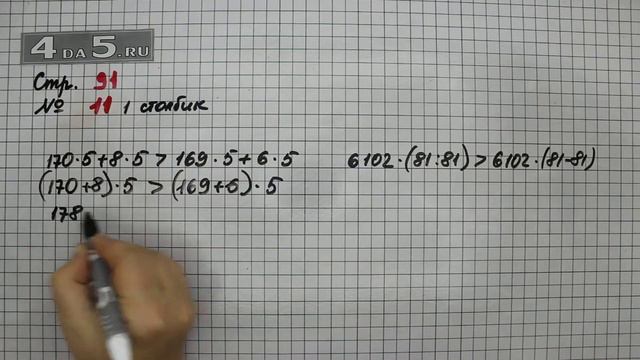 4 DA 5.RU
Стр. 91
№ 11 1 столбик
170·5+8·5 > 169·5+6·5
(170+8)·5 > (169+6)·5
178
6102·(81:81) > 6102·(81-81)